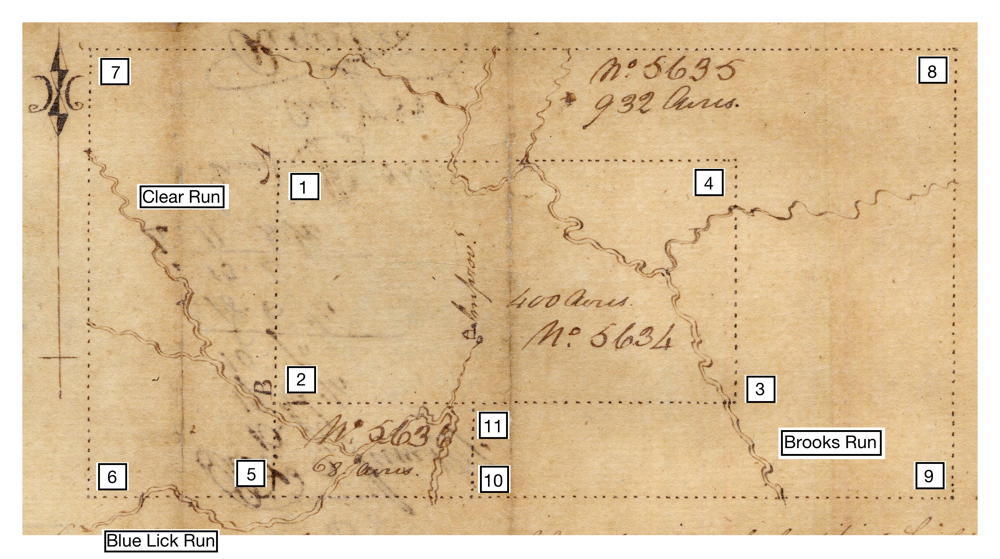 7
8
Nº 5635
932 Acres.
A
1
4
Clear Run
Improv.
400 Acres.
Nº 5634
B
2
3
11
Nº 563
68 Acres.
Brooks Run
5
6
10
9
Blue Lick Run